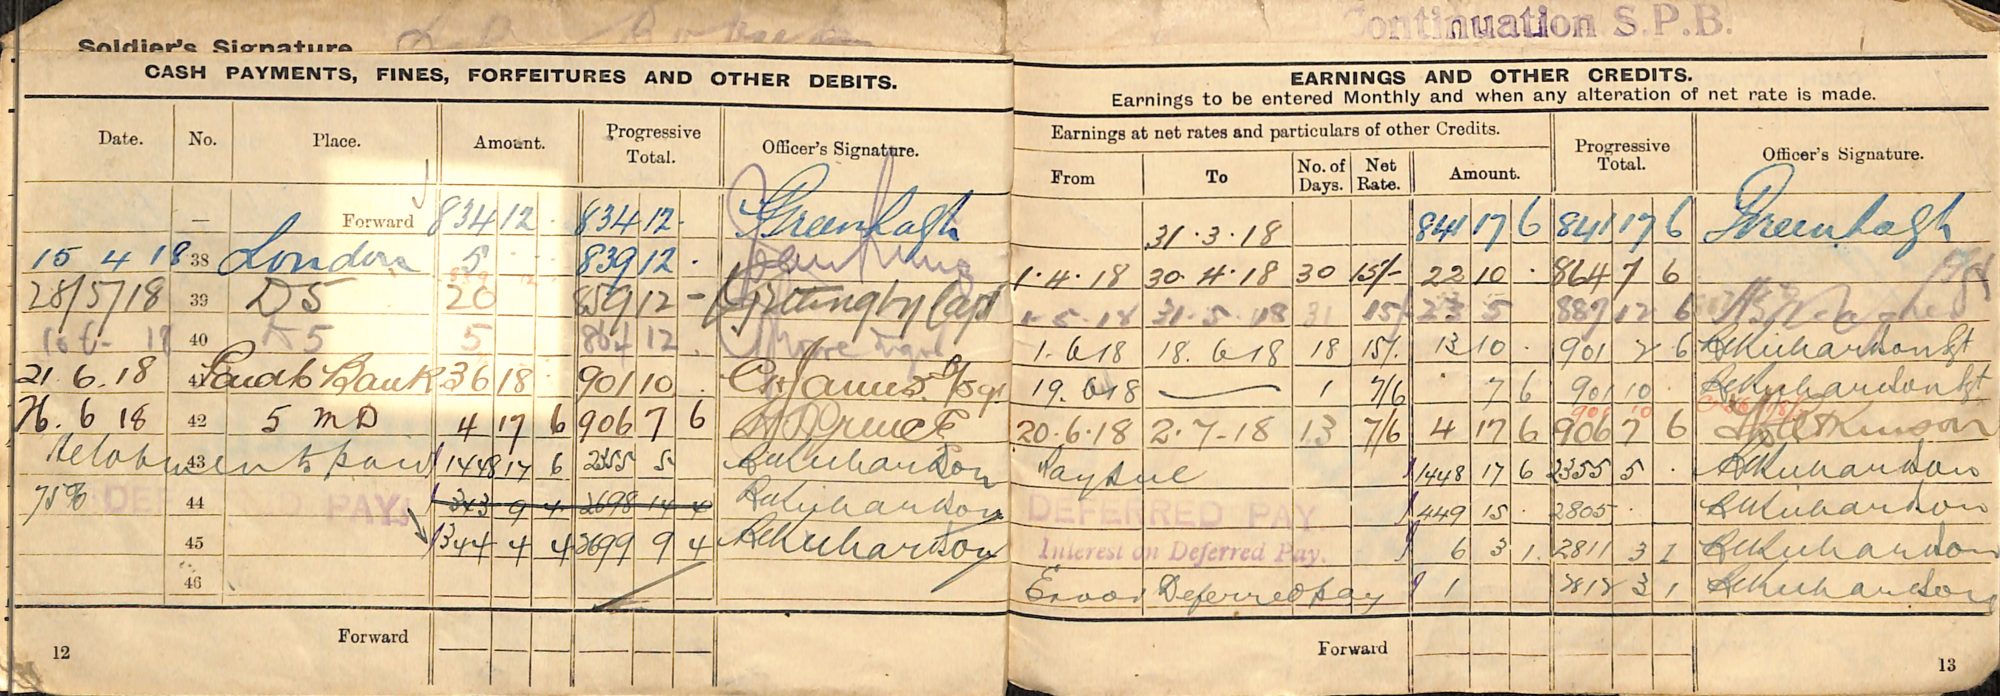 Continuation S.P.B.
Soldier's Signature
CASH PAYMENTS, FINES, FORFEITURES AND OTHER DEBITS.
Date. No. Place. Amount. Progressive Total. Officer's Signature.
— Forward 834 12 · 834 12 · Greenhalgh
15 4 18 38 London 5 · · 839 12 ·
28/5/18 39 D 5 20 859 12 –
40 5 864 12
21.6.18 41 Bank 36 18 901 10 ·
26.6 18 42 5 MD 4 17 6 906 7 6
43 1448 17 6 2355 5
75% DEFERRED PAY 44 343 9 4 2698 14 4
45 344 4 4 2699 9 4
46
Forward
12
EARNINGS AND OTHER CREDITS.
Earnings to be entered Monthly and when any alteration of net rate is made.
Earnings at net rates and particulars of other Credits. Progressive Total. Officer's Signature.
From To No. of Days. Net Rate. Amount.
31·3·18 841 17 6 841 17 6 Greenhalgh
1·4·18 30·4·18 30 15/- 22 10 · 864 7 6
1·5·18 31·5·18 31 15/- 23 5 887 12 6
1.6 18 18.6 18 18 15/. 13 10 · 901 2 6
19.6 18 — 1 7/6 7 6 901 10 ·
901 10
20·6·18 2·7-18 13 7/6 4 17 6 906 7 6
Pay due 1448 17 6 2355 5 ·
DEFERRED PAY. 449 15 · 2805 ·
Interest on Deferred Pay. 6 3 1. 2811 3 1
Error Deferred pay 1 2812 3 1
Forward
13